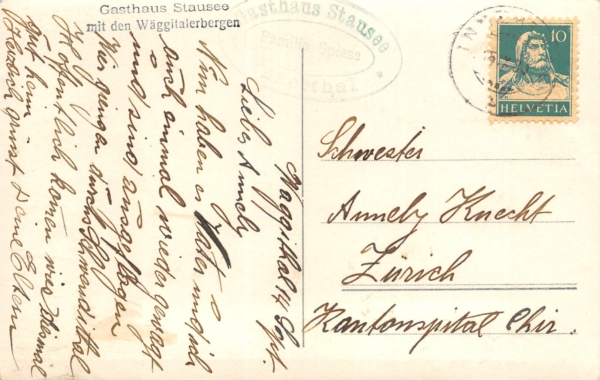 Gasthaus Stausee
mit den Wäggitalerbergen
Gasthaus Stausee
Familie Spiess
10
HELVETIA
Wäggithal 14 Sept.
Liebe Annely
Nun haben es Vater und ich
auch einmal wieder gewagt
und sind ausgeflogen
Wir gingen durchs
Hoffentlich komen wir diesmal
gut heim
Herzlich grüsst Deine Eltern
Schwester
Annely Knecht
Zürich
Kantonspital Chir.